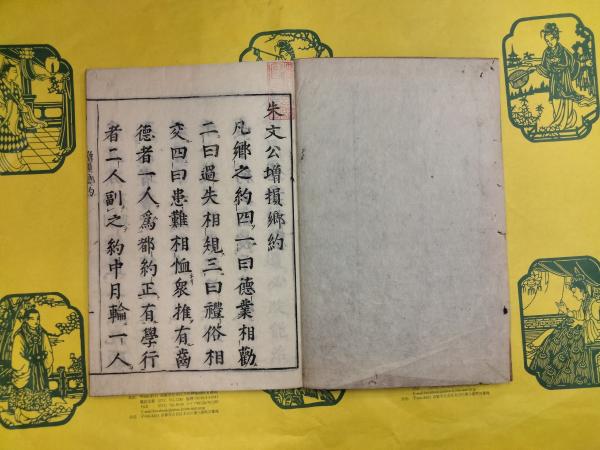 朱文公增損鄉約
凡鄉之約四一曰德業相勸
二曰過失相規三曰禮俗相
交四曰患難相恤衆推有齒
德者一人爲都約正有學行
者二人副之約中月輪一人